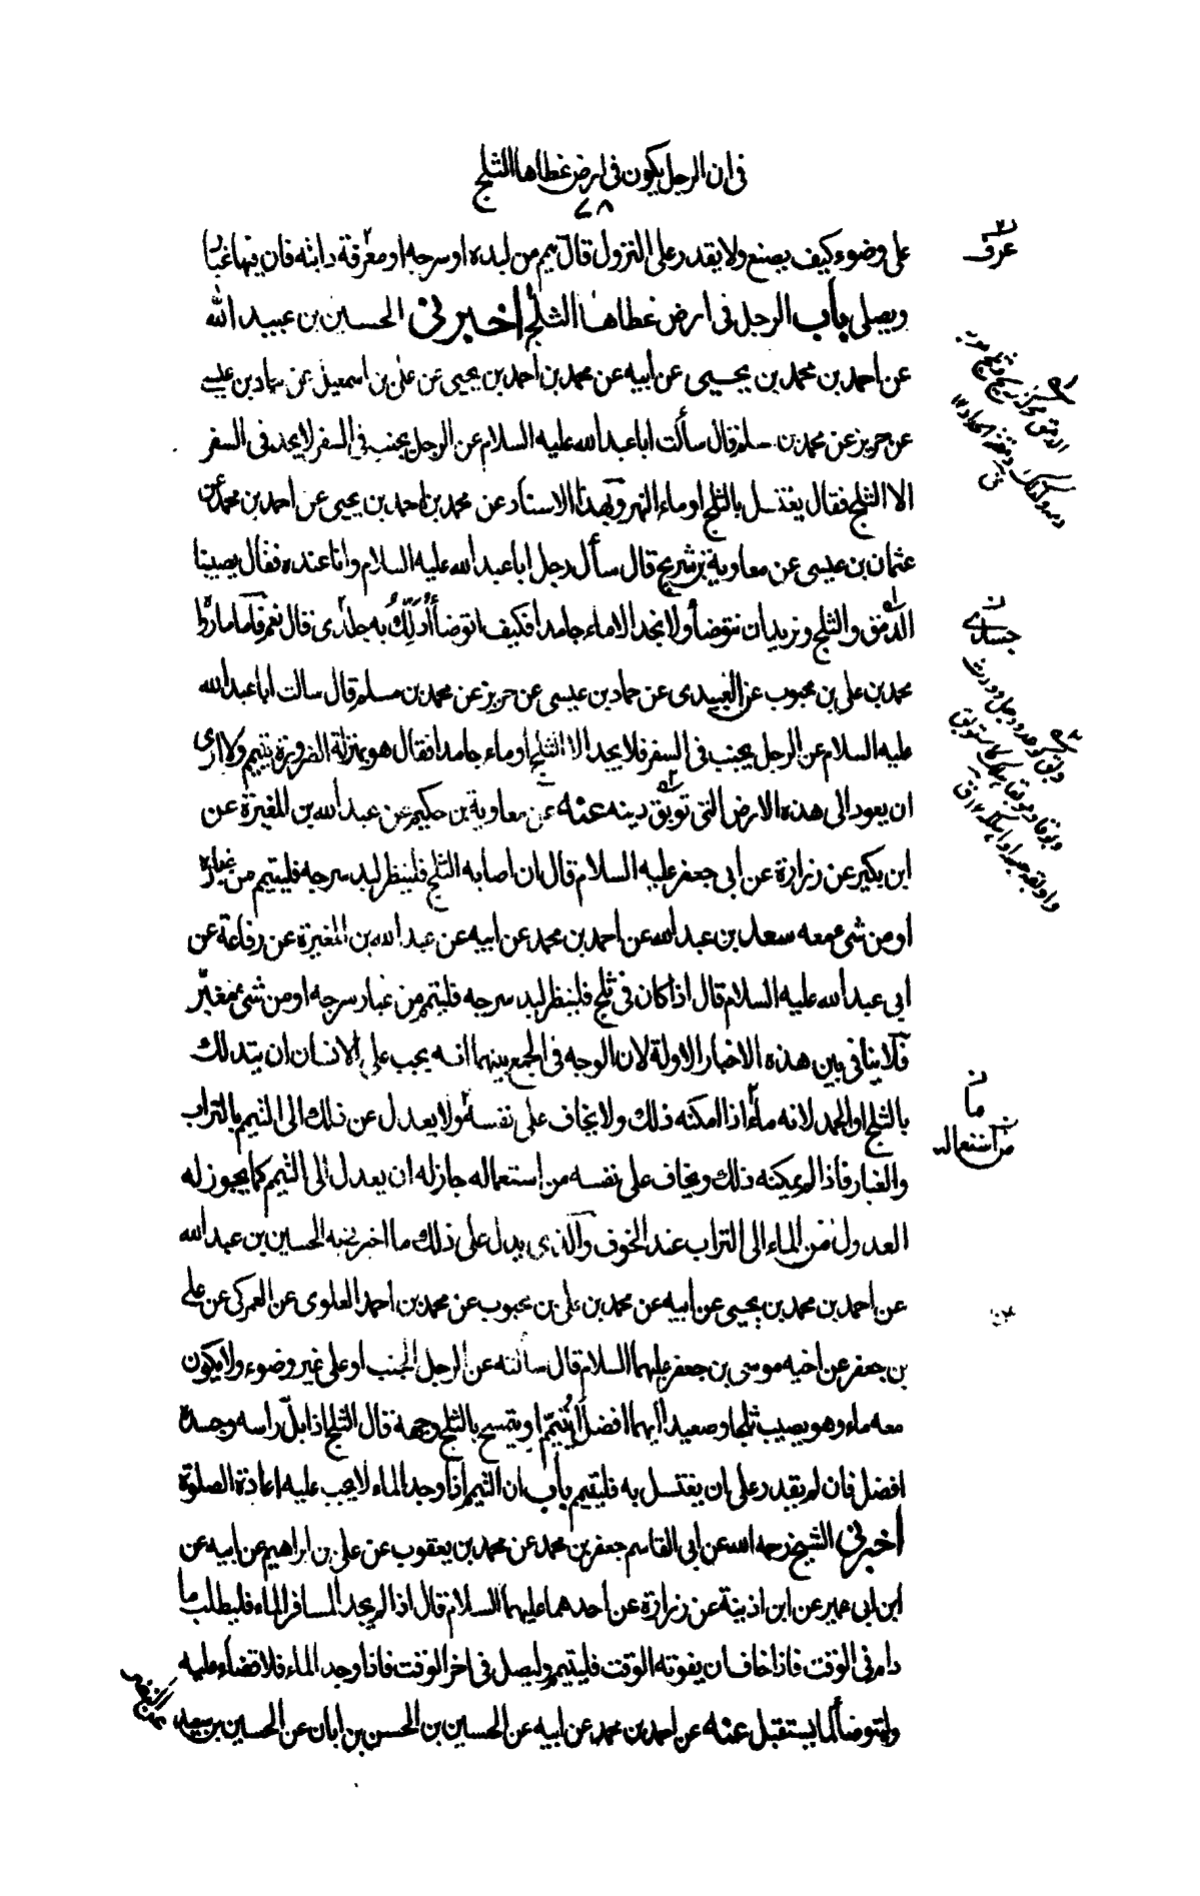 فى ان الرجل يكون فى ارض غطاها الثلج
٧٨
على وضوء كيف يصنع ولا يقدر على النزول قال تيمم من لبده او سرجه او معرفة دابته فان فيها غبارا
ويصلى باب الرجل فى ارض غطاها الثلج اخبرنى الحسين بن عبيد الله
عن احمد بن محمد بن يحيى عن ابيه عن محمد بن احمد بن يحيى عن على بن اسمعيل عن حماد بن عيسى
عن حريز عن محمد بن مسلم قال سألت ابا عبد الله عليه السلام عن الرجل يجنب فى السفر لا يجد فى السفر
الا الثلج فقال يغتسل بالثلج او ماء النهر وبهذا الاسناد عن محمد بن احمد بن يحيى عن احمد بن محمد عن
عثمان بن عيسى عن معاوية بن شريح قال سأل رجل ابا عبد الله عليه السلام وانا عنده فقال يصيبنا
الدمق والثلج ونريد ان نتوضأ ولا نجد الا ماء جامدا فكيف اتوضأ أدلك به جلدى قال نعم فاما ما رواه
محمد بن على بن محبوب عن العبيدى عن حماد بن عيسى عن حريز عن محمد بن مسلم قال سالت ابا عبد الله
عليه السلام عن الرجل يجنب فى السفر فلا يجد الا الثلج او ماء جامدا فقال هو بمنزلة الضرورة يتيمم ولا ارى
ان يعود الى هذه الارض التى توبق دينه عنه عن معاوية بن حكيم عن عبد الله بن المغيرة عن
ابن بكير عن زرارة عن ابى جعفر عليه السلام قال ان اصابه الثلج فلينظر لبد سرجه فليتيمم من غباره
او من شىء معه سعد بن عبد الله عن احمد بن محمد عن ابيه عن عبد الله بن المغيرة عن رفاعة عن
ابى عبد الله عليه السلام قال اذا كان فى ثلج فلينظر لبد سرجه فليتيمم من غبار سرجه او من شىء مغبر
فلا ينافى بين هذه الاخبار الاولة لان الوجه فى الجمع بينهما انه يجب على الانسان ان يتدلك
بالثلج او الجمد لانه ماء اذا امكنه ذلك ولا يخاف على نفسه ولا يعدل عن ذلك الى التيمم بالتراب
والغبار فاذا لم يمكنه ذلك ويخاف على نفسه من استعماله جاز له ان يعدل الى التيمم كما يجوز له
العدول من الماء الى التراب عند الخوف والذى يدل على ذلك ما اخبرنى به الحسين بن عبد الله
عن احمد بن محمد بن يحيى عن ابيه عن محمد بن على بن محبوب عن محمد بن احمد العلوى عن العمركى عن على
بن جعفر عن اخيه موسى بن جعفر عليهما السلام قال سألته عن الرجل الجنب او على غير وضوء ولا يكون
معه ماء وهو يصيب ثلجا وصعيدا ايهما افضل أيتيمم او يتمسح بالثلج وجهه قال الثلج اذا بل راسه وجسده
افضل فان لم يقدر على ان يغتسل به فليتيمم باب ان التيمم اذا وجد الماء لا يجب عليه اعادة الصلوة
اخبرنى الشيخ رحمه الله عن ابى القاسم جعفر بن محمد عن محمد بن يعقوب عن على بن ابراهيم عن ابيه عن
ابن ابى عمير عن ابن اذينة عن زرارة عن احدهما عليهما السلام قال اذا لم يجد المسافر الماء فليطلب ما
دام فى الوقت فاذا خاف ان يفوته الوقت فليتيمم وليصل فى اخر الوقت فاذا وجد الماء فلا قضاء عليه
وليتوضأ لما يستقبل عنه عن احمد بن محمد عن ابيه عن الحسين بن الحسن بن ابان عن الحسين بن سعيد
عرف
جسدى
ما
من استعماله